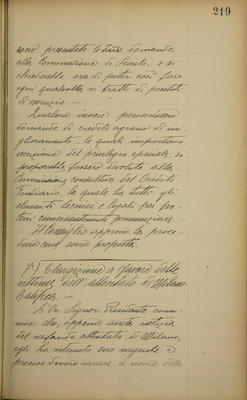 219
sono presentate le dare domande
alla Commissione di Sconto, e si
chiederebbe ora di poter così fare
ogni qualvolta si tratti di prestiti
di esercizio. —
Qualora invece pervenissero
domande di credito agrario di mi-
glioramento, le quali importano
iscrizione del privilegio speciale, si
proporrebbe, fossero devolute alla
Commissione consultiva del Credito
Fondiario, la quale ha tutti gli
elementi tecnici e legali per po-
tersi convenientemente pronunziare. —
Il Consiglio approva la proce-
dura così sorta proposta.
7) Elargizione a favore delle
vittime dell'attentato di Milano
L'On. Signor Presidente comu-
nica che, appena avuta notizia
del nefando attentato di Milano,
egli ha ritenuto suo urgente e
preciso dovere inviare a nome della